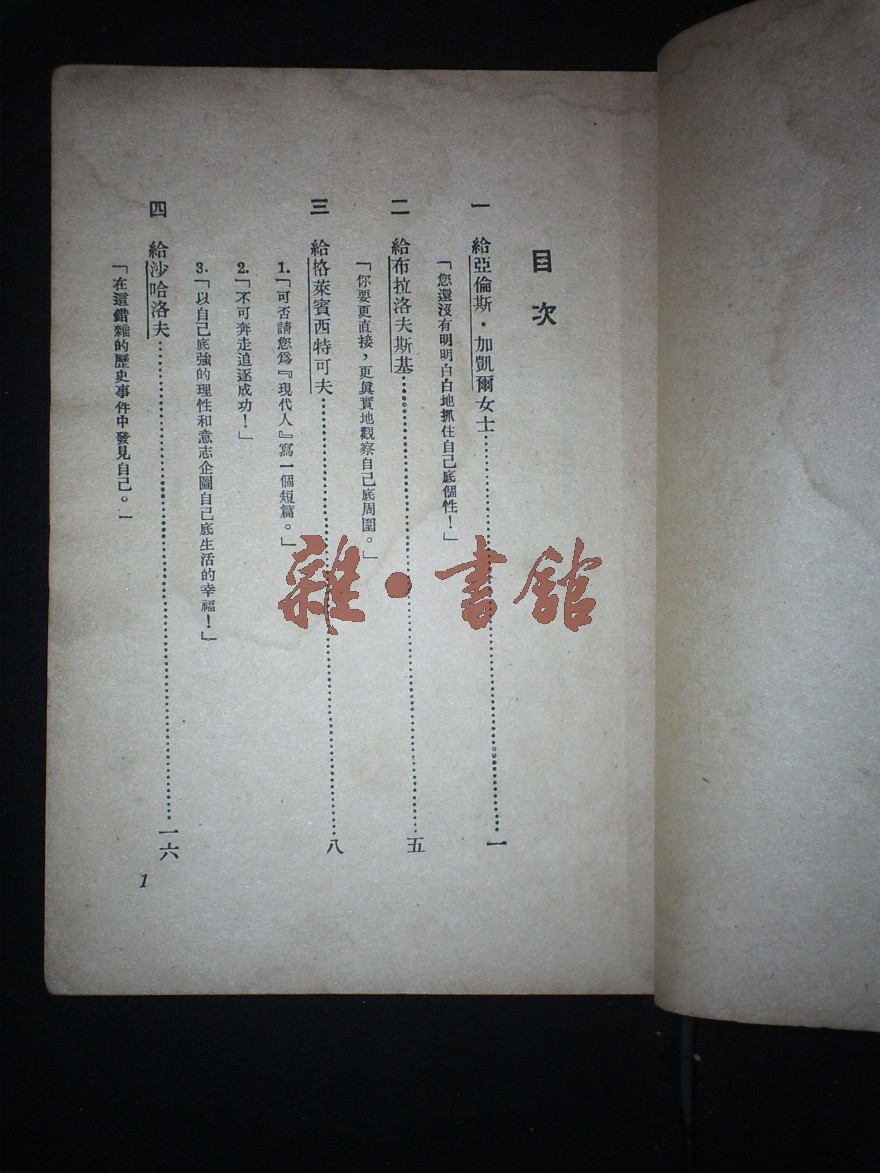 目次
一 給亞倫斯・加凱爾女士……一
「您還沒有明明白白地抓住自己底個性！」
二 給布拉洛夫斯基……五
「你要更直接，更眞實地觀察自己底周圍。」
三 給格萊賓西特可夫……八
1.「可否請您爲『現代人』寫一個短篇。」
2.「不可奔走追逐成功！」
3.「以自己底強的理性和意志企圖自己底生活的幸福！」
四 給沙哈洛夫……一六
「在這錯雜的歷史事件中發見自己。」
1
雜・書館